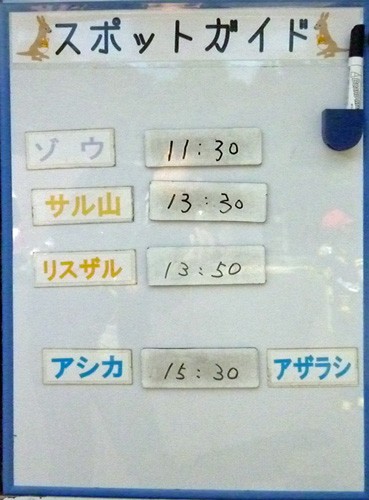 スポットガイド
ゾウ 11:30
サル山 13:30
リスザル 13:50
アシカ 15:30 アザラシ